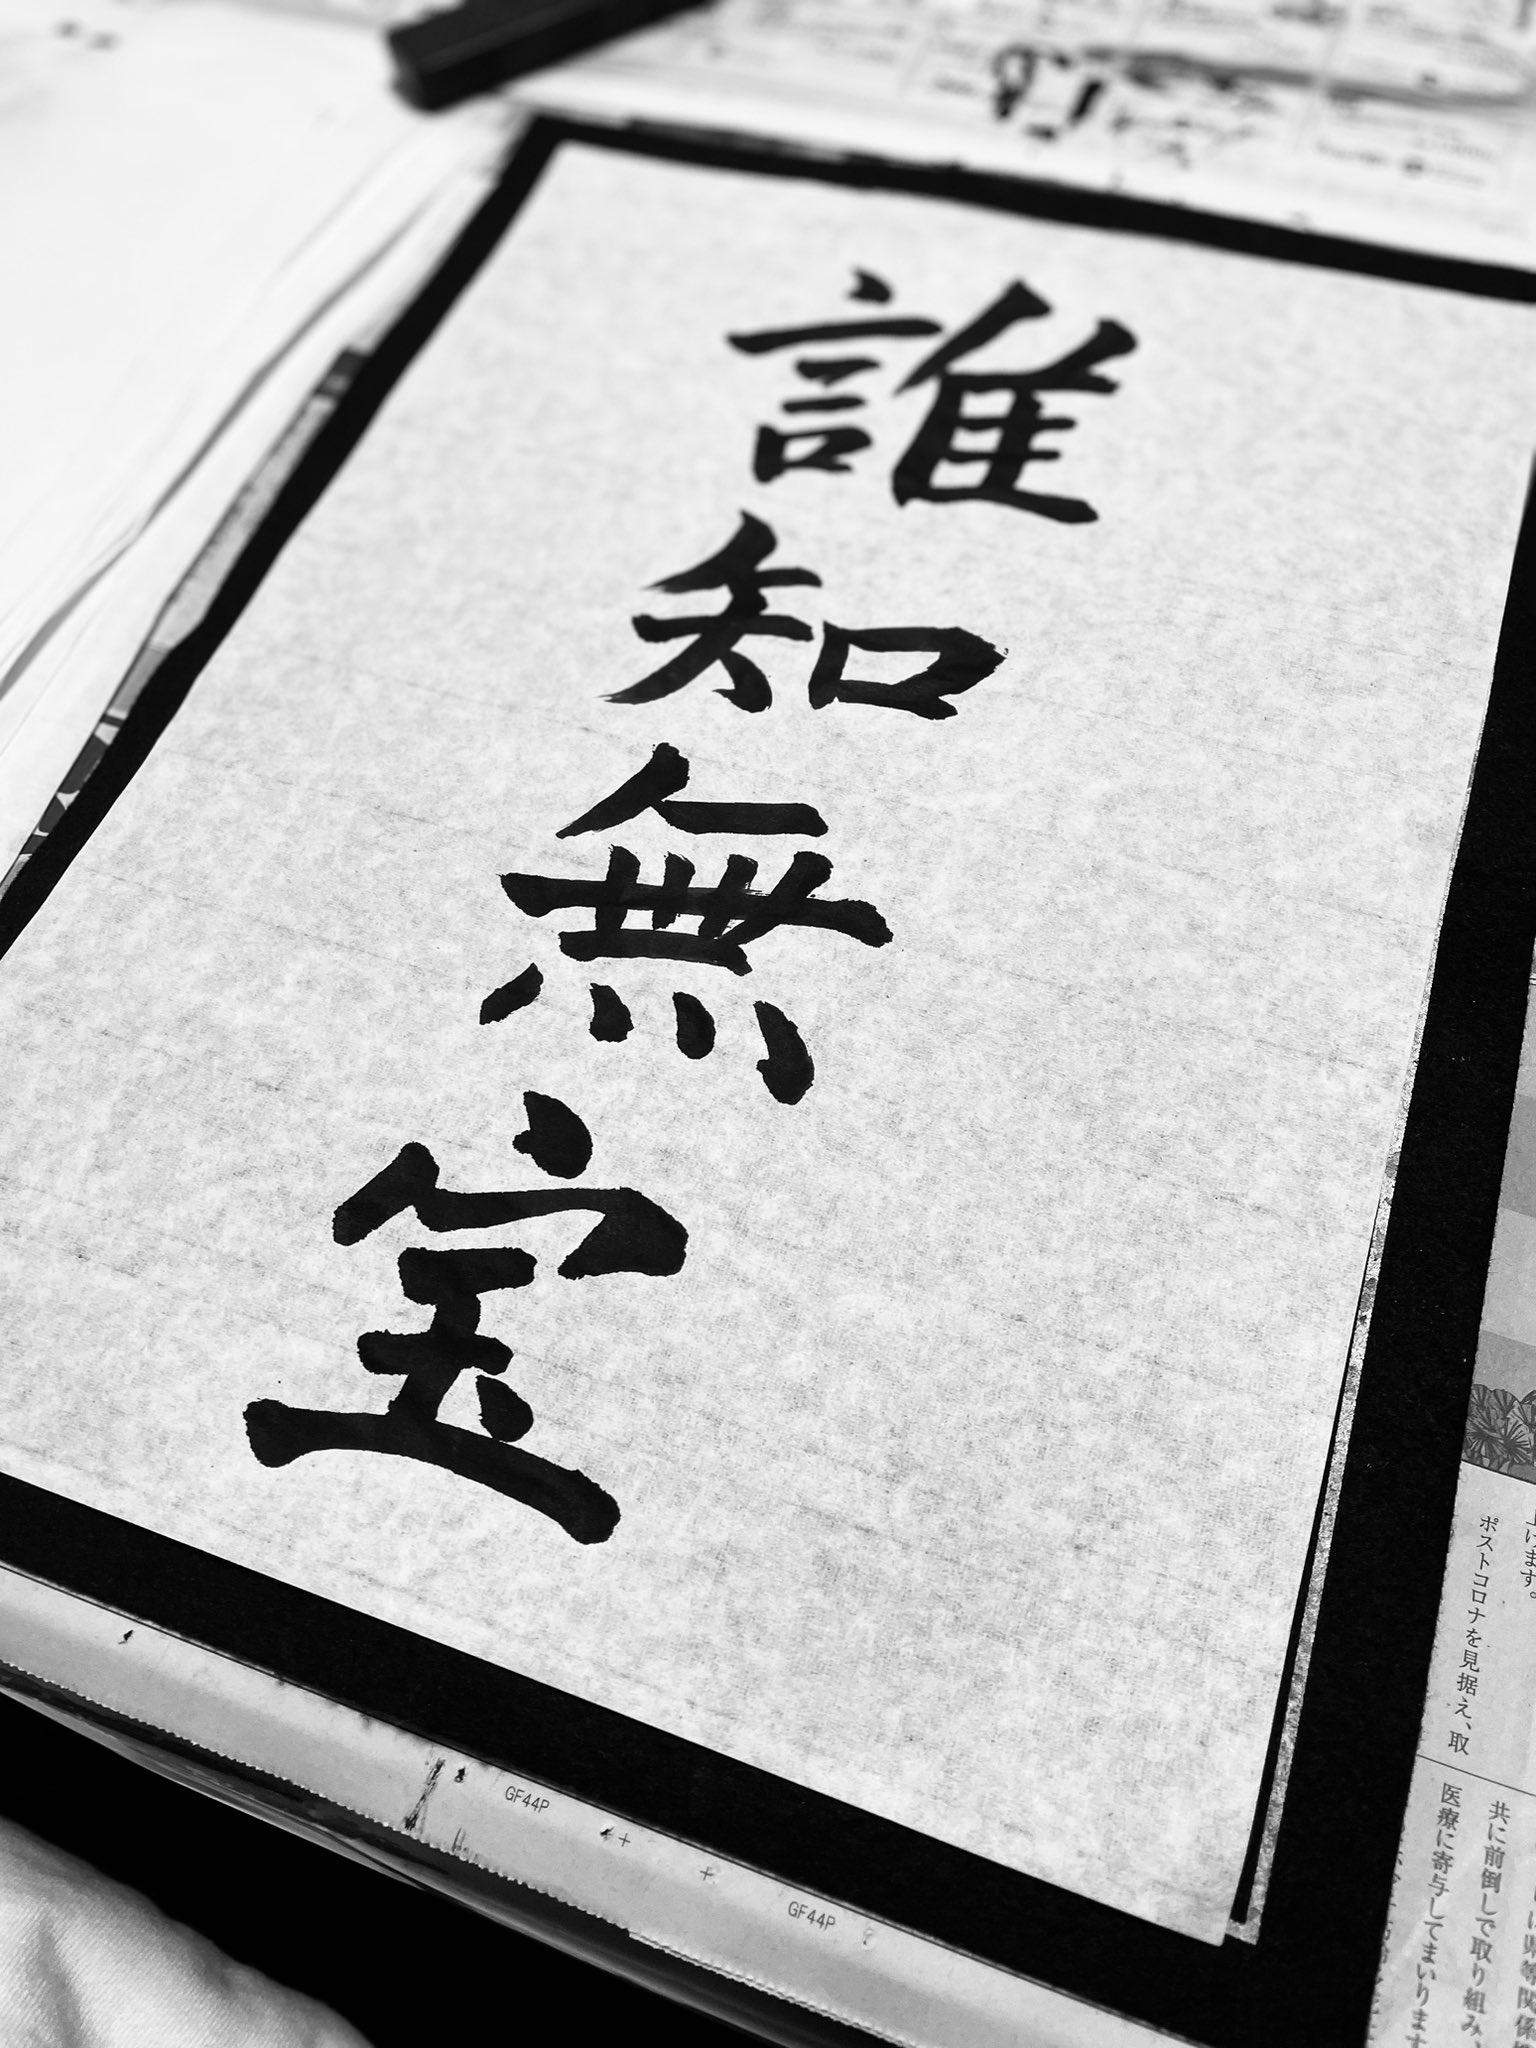 誰知無宝
上げます。
ポストコロナを見据え、取
共に前倒しで取り組み、
医療に寄与してまいります
GF44P
GF44P